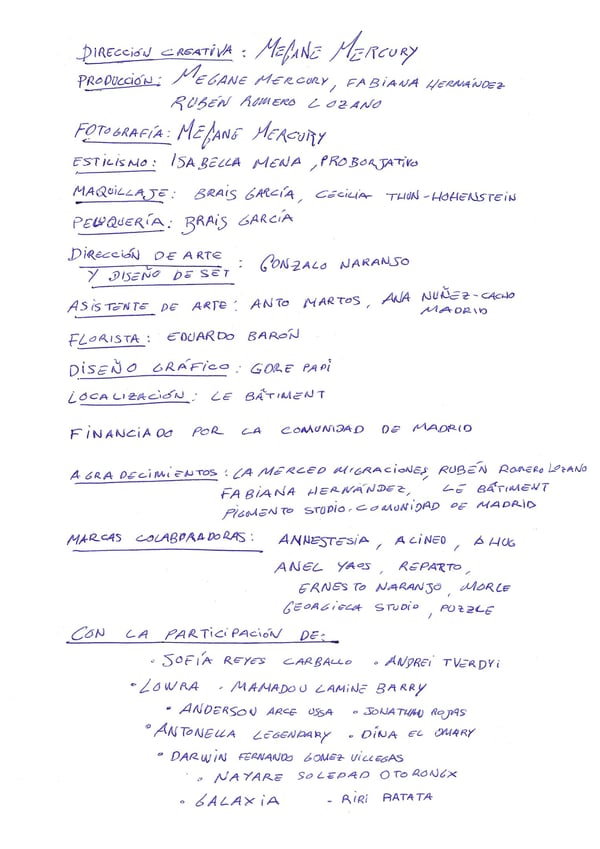 DIRECCIÓN CREATIVA : MEGANE MERCURY
PRODUCCIÓN: MEGANE MERCURY, FABIANA HERNÁNDEZ
RUBÉN ROMERO LOZANO
FOTOGRAFÍA: MEGANE MERCURY
ESTILISMO: ISABELLA MENA, PROBORJATIVO
MAQUILLAJE: BRAIS GARCÍA, CECILIA THUN-HOHENSTEIN
PELUQUERÍA: BRAIS GARCÍA
DIRECCIÓN DE ARTE
Y DISEÑO DE SET : GONZALO NARANJO
ASISTENTE DE ARTE: ANTO MARTOS, ANA NUÑEZ-CACHO
MADRID
FLORISTA: EDUARDO BARÓN
DISEÑO GRÁFICO: GORE PAPI
LOCALIZACIÓN: LE BÂTIMENT
FINANCIADO POR LA COMUNIDAD DE MADRID
AGRADECIMIENTOS: LA MERCED MIGRACIONES, RUBÉN ROMERO LOZANO
FABIANA HERNÁNDEZ, LE BÂTIMENT
PIGMENTO STUDIO. COMUNIDAD DE MADRID
MARCAS COLABORADORAS: ANNESTESIA, ALINEO, AHUG
ANEL YAOS, REPARTO,
ERNESTO NARANJO, MORLE
GEORGIELA STUDIO, POZZLE
CON LA PARTICIPACIÓN DE:
• SOFÍA REYES CARBALLO • ANDREI TVERDYI
• LOWRA • MAMADOU LAMINE BARRY
• ANDERSON ARCE USSA • JONATHAN ROJAS
• ANTONELLA LEGENDARY • DINA EL OMARY
• DARWIN FERNANDO GOMEZ VILLEGAS
• NAYARE SOLEDAD OTORONGX
• GALAXIA - RIRI RATATA